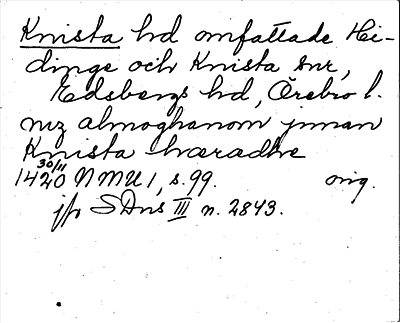 Knista hd omfattade Hi-
dinge och Knista snr,
Edsbergs hd, Örebro l.
mz almoghanom jnnan
Knista hæradhe
30/11
1420 NMU 1, s. 99. orig.
jfr SDns III n. 2843.